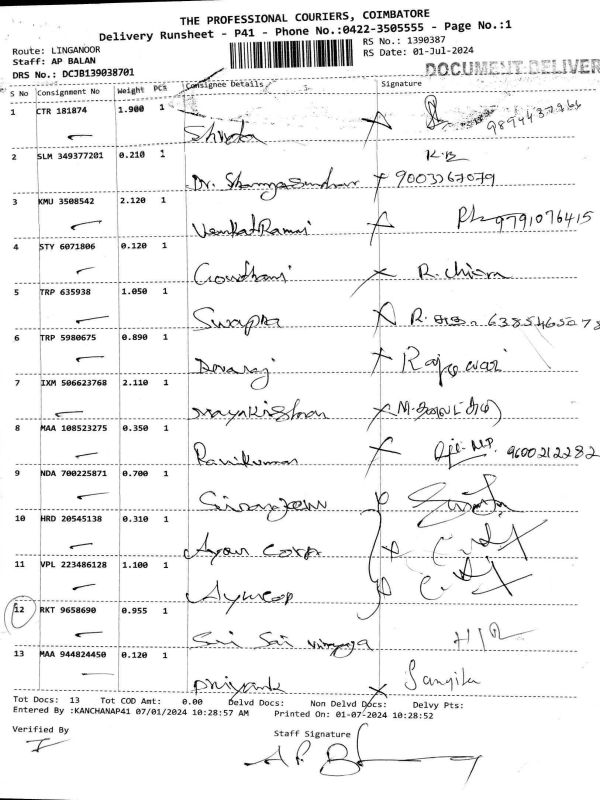 THE PROFESSIONAL COURIERS, COIMBATORE
Delivery Runsheet - P41 - Phone No.:0422-3505555 - Page No.:1
Route: LINGANOOR
RS No.: 1390387
Staff: AP BALAN
RS Date: 01-Jul-2024
DRS No.: DCJB139038701
DOCUMENT DELIVER
S No Consignment No Weight PCs Consignee Details Signature
1 CTR 181874 1.900 1
2 SLM 349377201 0.210 1
K.B
Dr. Shamyasundar 9003267079
3 KMU 3508542 2.120 1
VenkatRaman 9791076415
4 STY 6071806 0.120 1
Gowthami R. Chitra
5 TRP 635938 1.050 1
Swapna R.
6 TRP 5980675 0.890 1
Devaraj
7 IXM 506623768 2.110 1
Mayakrishnan
8 MAA 108523275 0.350 1
Ravikumar 9600212282
9 NDA 700225871 0.700 1
10 HRD 20545138 0.310 1
Ayur Corp
11 VPL 223486128 1.100 1
12 RKT 9658690 0.955 1
Sri Sai H/R
13 MAA 944824450 0.120 1
Priyank Sangita
Tot Docs: 13 Tot COD Amt: 0.00 Delvd Docs: Non Delvd Docs: Delvy Pts:
Entered By :KANCHANAP41 07/01/2024 10:28:57 AM Printed On: 01-07-2024 10:28:52
Verified By
Staff Signature